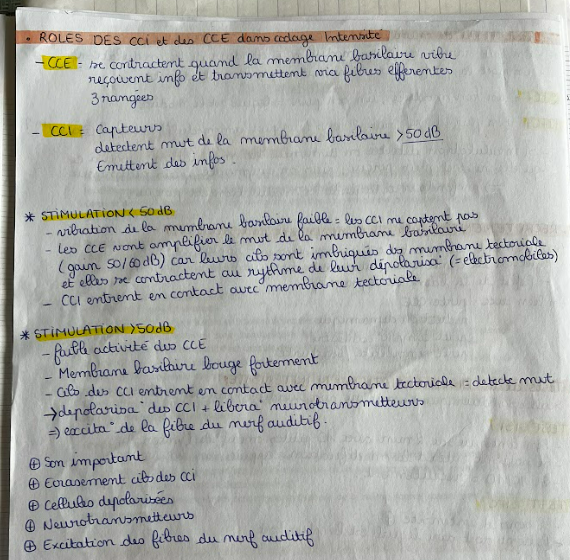 • ROLES DES CCI et des CCE dans codage Intensité
- CCE = se contractent quand la membrane basilaire vibre
reçoivent info et transmettent via fibres efferentes
3 rangées
- CCI = Capteurs
detectent mvt de la membrane basilaire > 50 dB
Emettent des infos.
* STIMULATION < 50 dB
- vibration de la membrane basilaire faible = les CCI ne captent pas
- Les CCE vont amplifier le mvt de la membrane basilaire
(gain 50/60 dB) car leurs cils sont imbriqués ds membrane tectoriale
et elles se contractent au rythme de leur dépolarisa° (= electromobiles)
- CCI entrent en contact avec membrane tectoriale
* STIMULATION > 50 dB
- faible activité des CCE
- Membrane basilaire bouge fortement
- Cils des CCI entrent en contact avec membrane tectoriale = detecte mvt
→ depolarisa° des CCI + libera° neurotransmetteurs
⇒ excita° de la fibre du nerf auditif.
⊕ Son important
⊕ Ecrasement cils des cci
⊕ Cellules depolarisées
⊕ Neurotransmetteurs
⊕ Excitation des fibres du nerf auditif